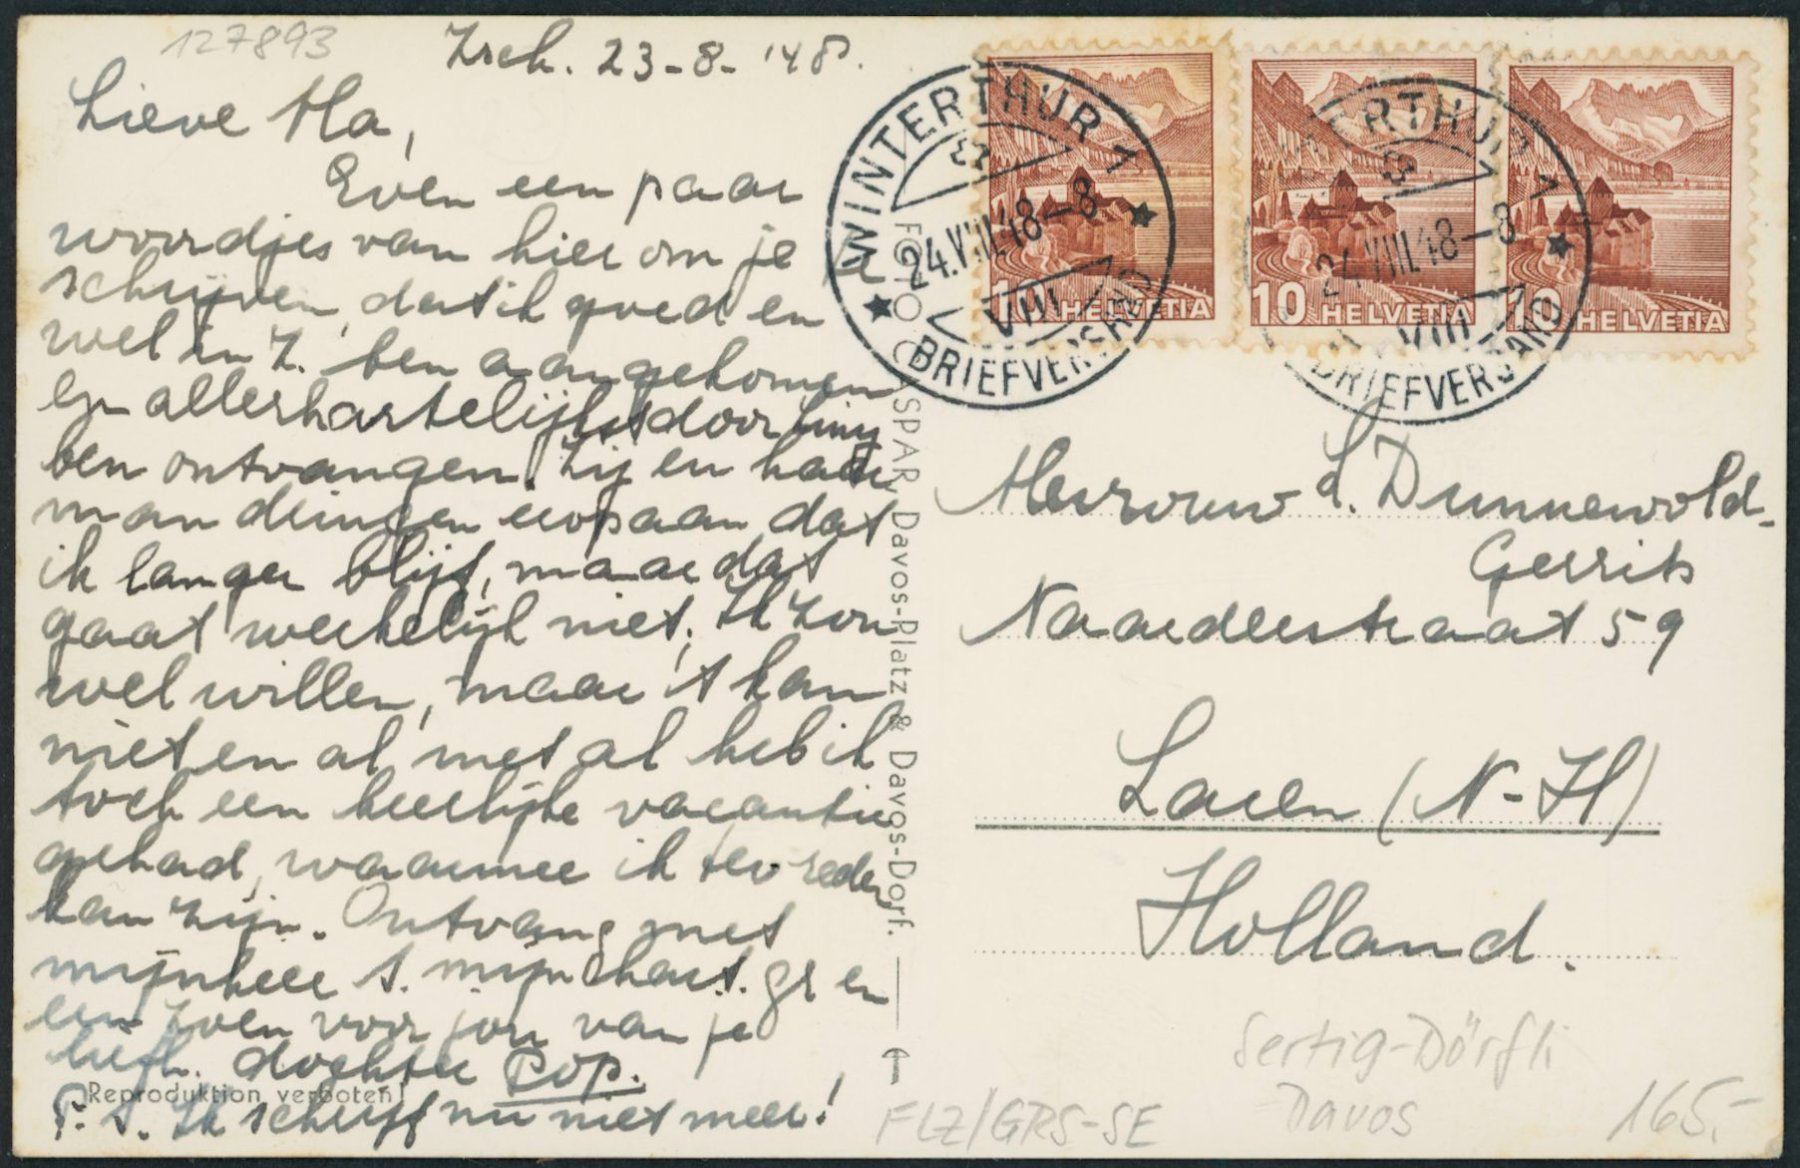 127893
Zrch. 23-8-'48.
Lieve Ma,
Even een paar
woordjes van hier om je te
schrijven, dat ik goed en
wel in Z. ben aangekomen
en allerhartelijkst door Liny
ben ontvangen. Zij en haar
man dringen erop aan dat
ik langer blijf, maar dat
gaat werkelijk niet. Ik zou
wel willen, maar 't kan
niet en al met al heb ik
toch een heerlijke vacantie
gehad, waarmee ik tevreden
kan zijn. Ontvang met
mijnheer S. mijn hart. gr en
een zoen voor jou van je
liefh. dochter Pop.
P.S. Ik schrijf nu niet meer!
Reproduktion verboten!
FOTO C. CASPAR, Davos-Platz & Davos-Dorf.
WINTERTHUR 1
24.VIII.48–8
VIII
BRIEFVERSAND
WINTERTHUR 1
24.VIII.48–8
VIII
BRIEFVERSAND
10 HELVETIA
10 HELVETIA
10 HELVETIA
Mevrouw d. Dunnewold-
Gerrits
Naarderstraat 59
Laren (N-H)
Holland.
Sertig-Dörfli
Davos
FLZ/GRS-SE
165.-